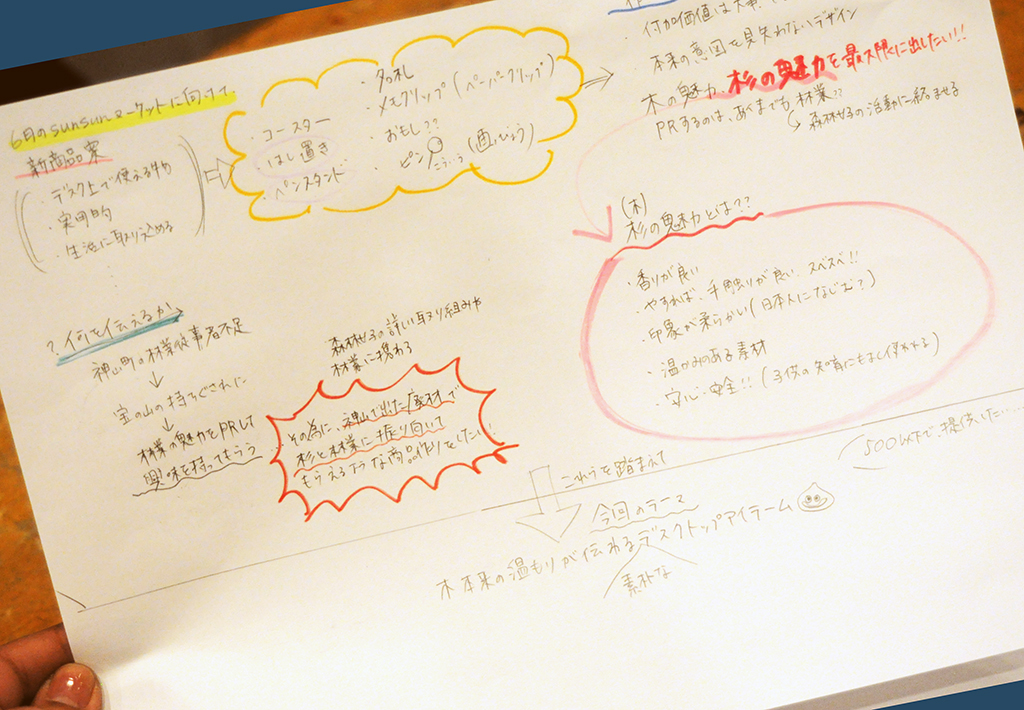 6月のsunsunマーケットに向けて、
新商品案
・デスク上で使える物
・実用的
・生活に取り込める
・コースター
・はし置き
・ペンスタンド
・名札
・メモクリップ（ペーパークリップ）
・おもし??
・ピン こういう（画びょう）
・付加価値は大事、
本来の意図を見失わないデザイン
木の魅力、杉の魅力を最大限に出したい!!
PRするのは、あくまでも林業??
森林女子の活動に絡ませる
(木)
杉の魅力とは??
・香りが良い
やすれば、手触りが良い、スベスベ!!
・印象が柔らかい（日本人になじむ？）
・温かみのある素材
・安心・安全!!（子供の知育にもよく使われる）
?何を伝えるか
神山町の林業従事者不足
↓
宝の山の持ちぐされに
↓
林業の魅力をPRして
興味を持ってもらう
森林女子の詳しい取り組みや
林業に携わる
その為に、神山で出た廃材で
杉と林業に振り向いて
もらえるような商品作りをしたい!
500以下で、提供したい……
これらを踏まえて
今回のテーマ
木本来の温もりが伝わるデスクトップアイテーム
素朴な